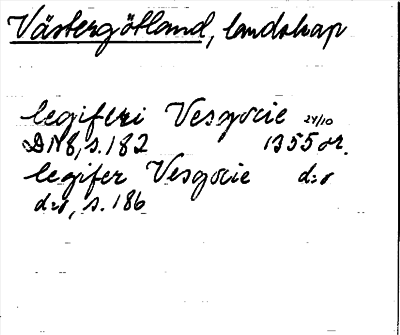 Västergötland, landskap
legiferi Vesgocie 24/10
DN8, s. 182 1355 or.
legifer Vesgocie d:o
d:o, s. 186